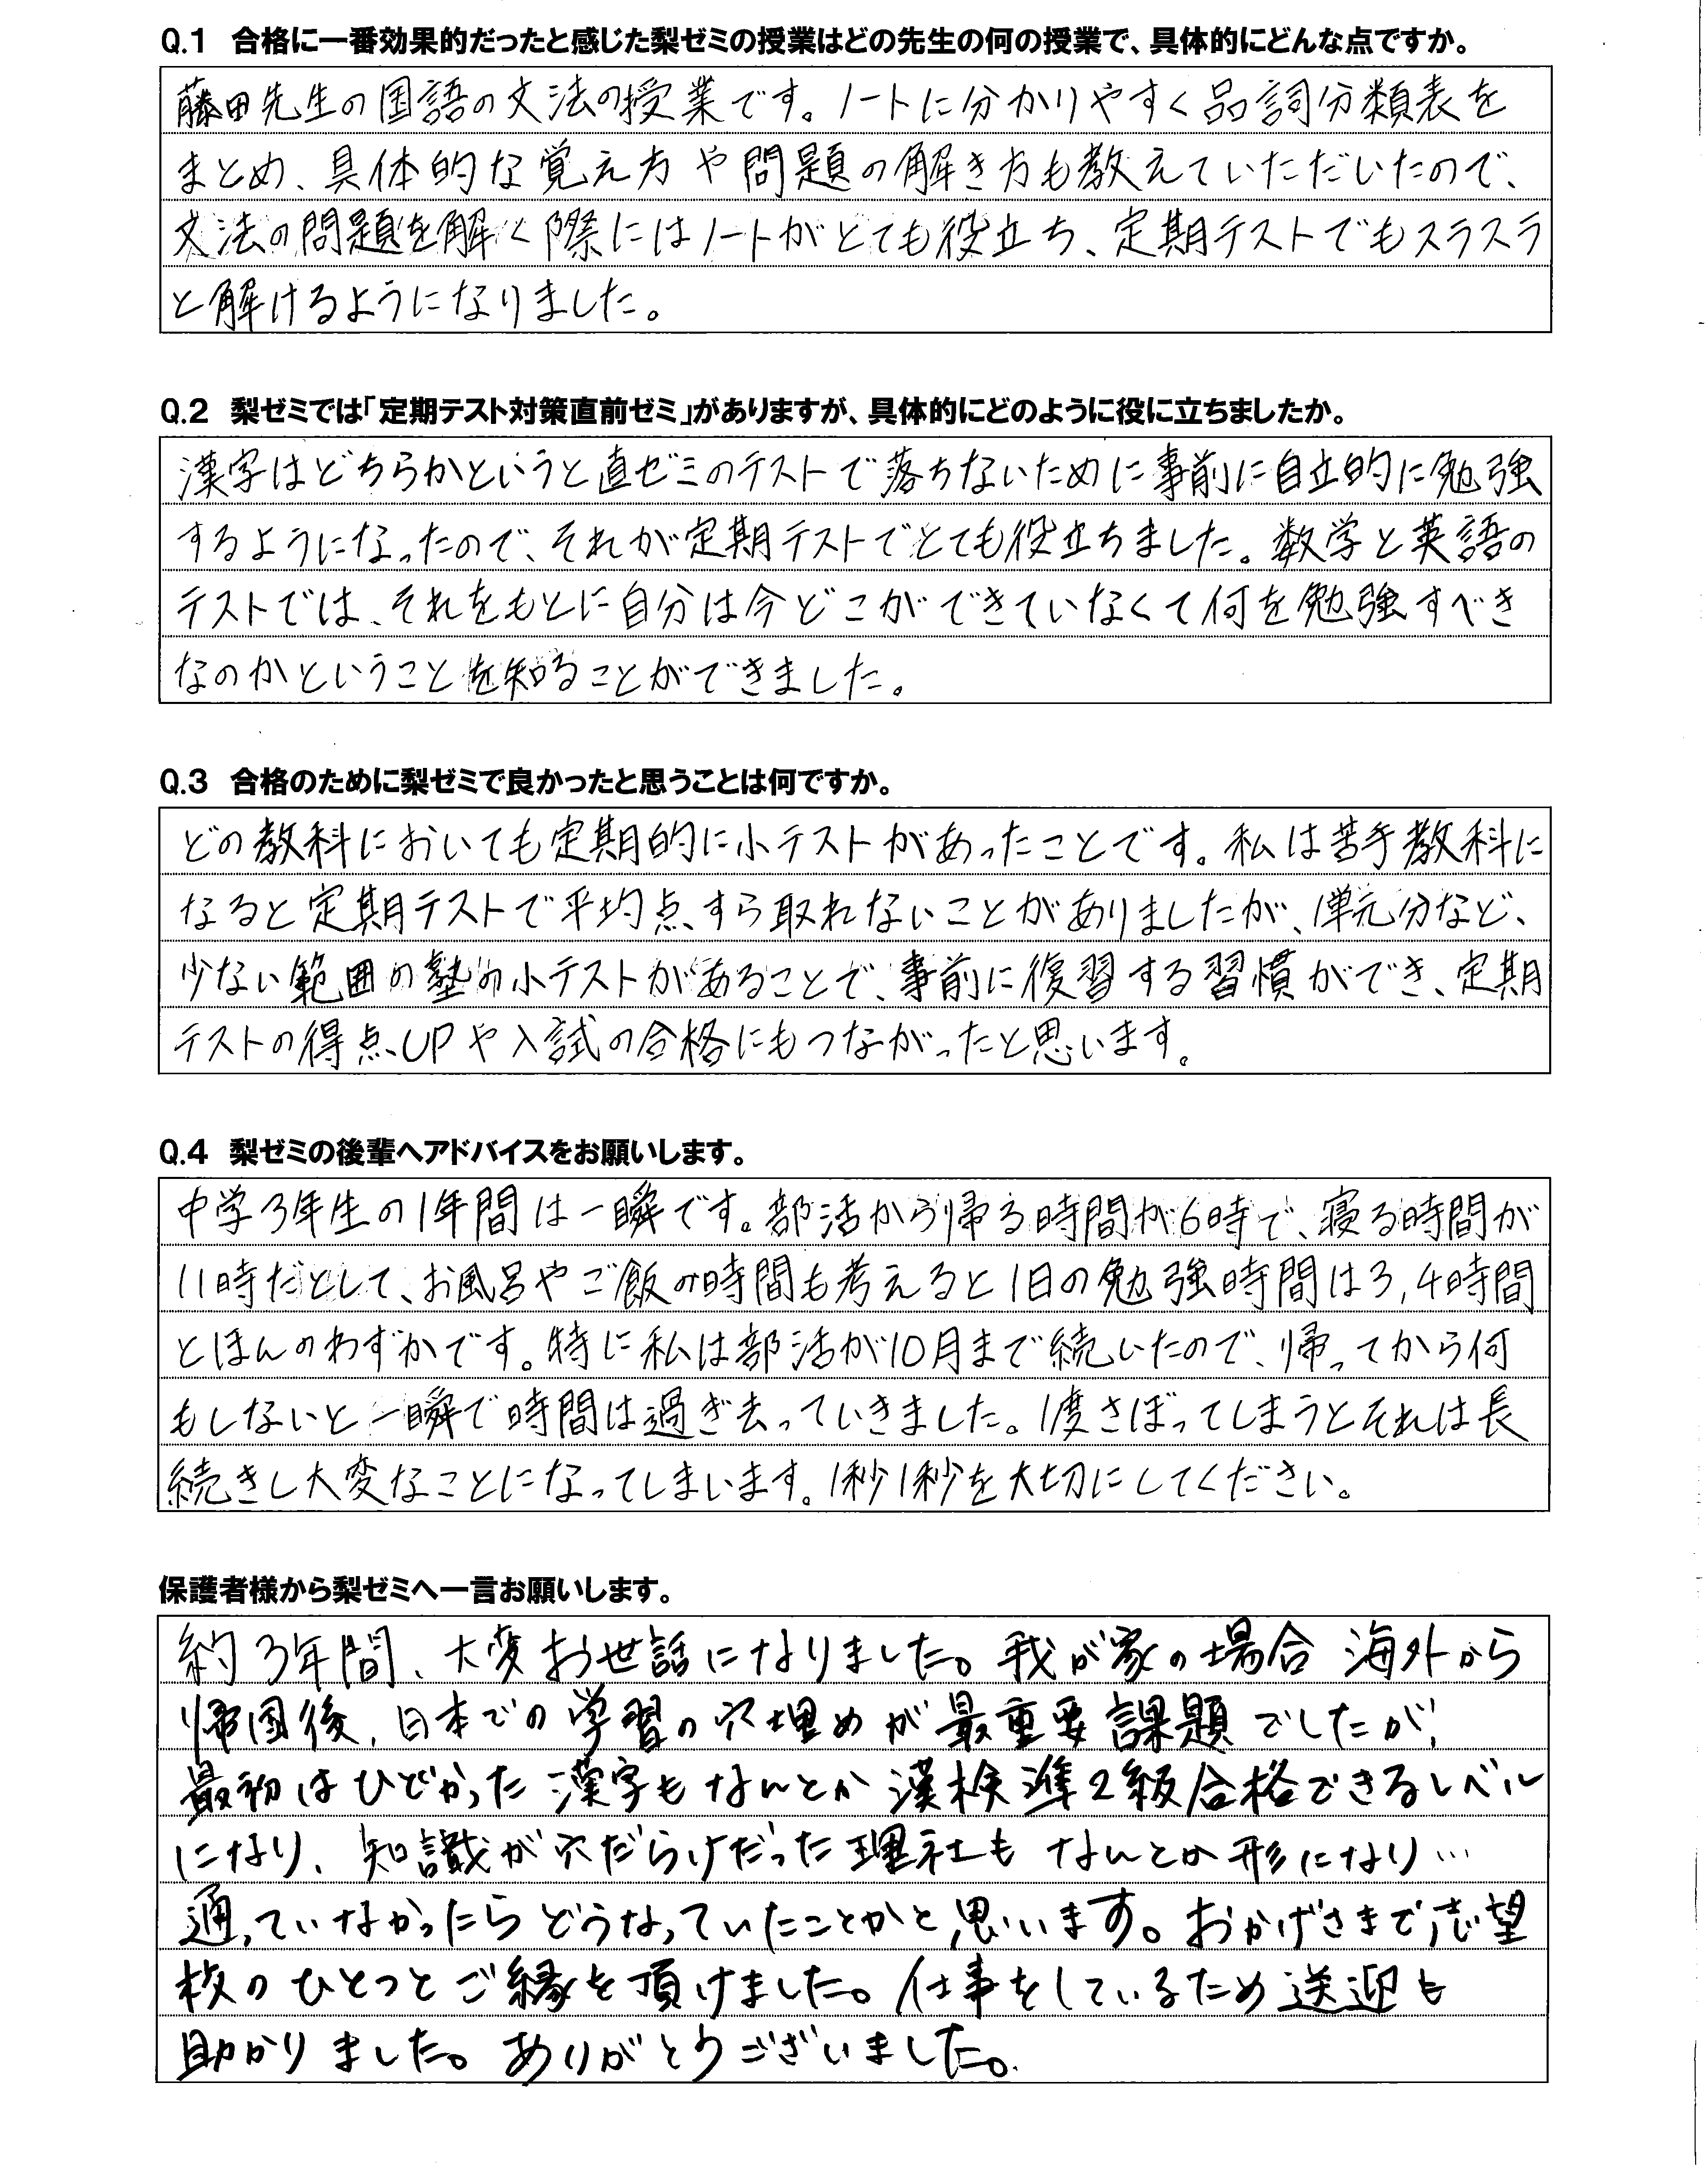 Q.1 合格に一番効果的だったと感じた梨ゼミの授業はどの先生の何の授業で、具体的にどんな点ですか。
藤田先生の国語の文法の授業です。ノートに分かりやすく品詞分類表を
まとめ、具体的な覚え方や問題の解き方も教えていただいたので、
文法の問題を解く際にはノートがとても役立ち、定期テストでもスラスラ
と解けるようになりました。
Q.2 梨ゼミでは「定期テスト対策直前ゼミ」がありますが、具体的にどのように役に立ちましたか。
漢字はどちらかというと直ゼミのテストで落ちないために事前に自立的に勉強
するようになったので、それが定期テストでとても役立ちました。数学と英語の
テストでは、それをもとに自分は今どこができていなくて何を勉強すべき
なのかということを知ることができました。
Q.3 合格のために梨ゼミで良かったと思うことは何ですか。
どの教科においても定期的に小テストがあったことです。私は苦手教科に
なると定期テストで平均点すら取れないことがありましたが、1単元分など、
少ない範囲の塾の小テストがあることで、事前に復習する習慣ができ、定期
テストの得点UPや入試の合格にもつながったと思います。
Q.4 梨ゼミの後輩へアドバイスをお願いします。
中学3年生の1年間は一瞬です。部活から帰る時間が6時で、寝る時間が
11時だとして、お風呂やご飯の時間も考えると1日の勉強時間は3,4時間
とほんのわずかです。特に私は部活が10月まで続いたので、帰ってから何
もしないと一瞬で時間は過ぎ去っていきました。1度さぼってしまうとそれは長
続きし大変なことになってしまいます。1秒1秒を大切にしてください。
保護者様から梨ゼミへ一言お願いします。
約3年間、大変お世話になりました。我が家の場合 海外から
帰国後、日本での学習の穴埋めが最重要課題でしたが、
最初はひどかった漢字もなんとか漢検準2級合格できるレベル
になり、知識が穴だらけだった理社もなんとか形になり…
通っていなかったらどうなっていたことかと思います。おかげさまで志望
校のひとつとご縁を頂けました。仕事をしているため送迎も
助かりました。ありがとうございました。